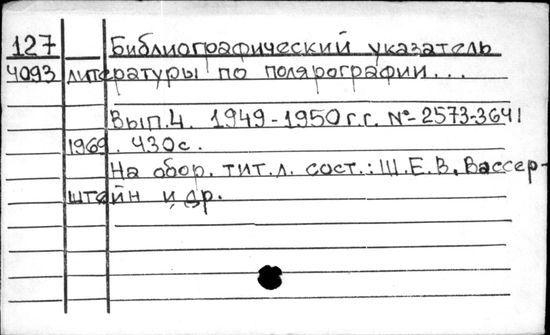 127 Библиографический указатель
4093 литературы по полярографии...
Вып.4. 1949-1950г.г. №-2573-3641
1969. 430с.
На обор. тит.л. сост.: Ш.Е.В. Вассер-
штейн и др.